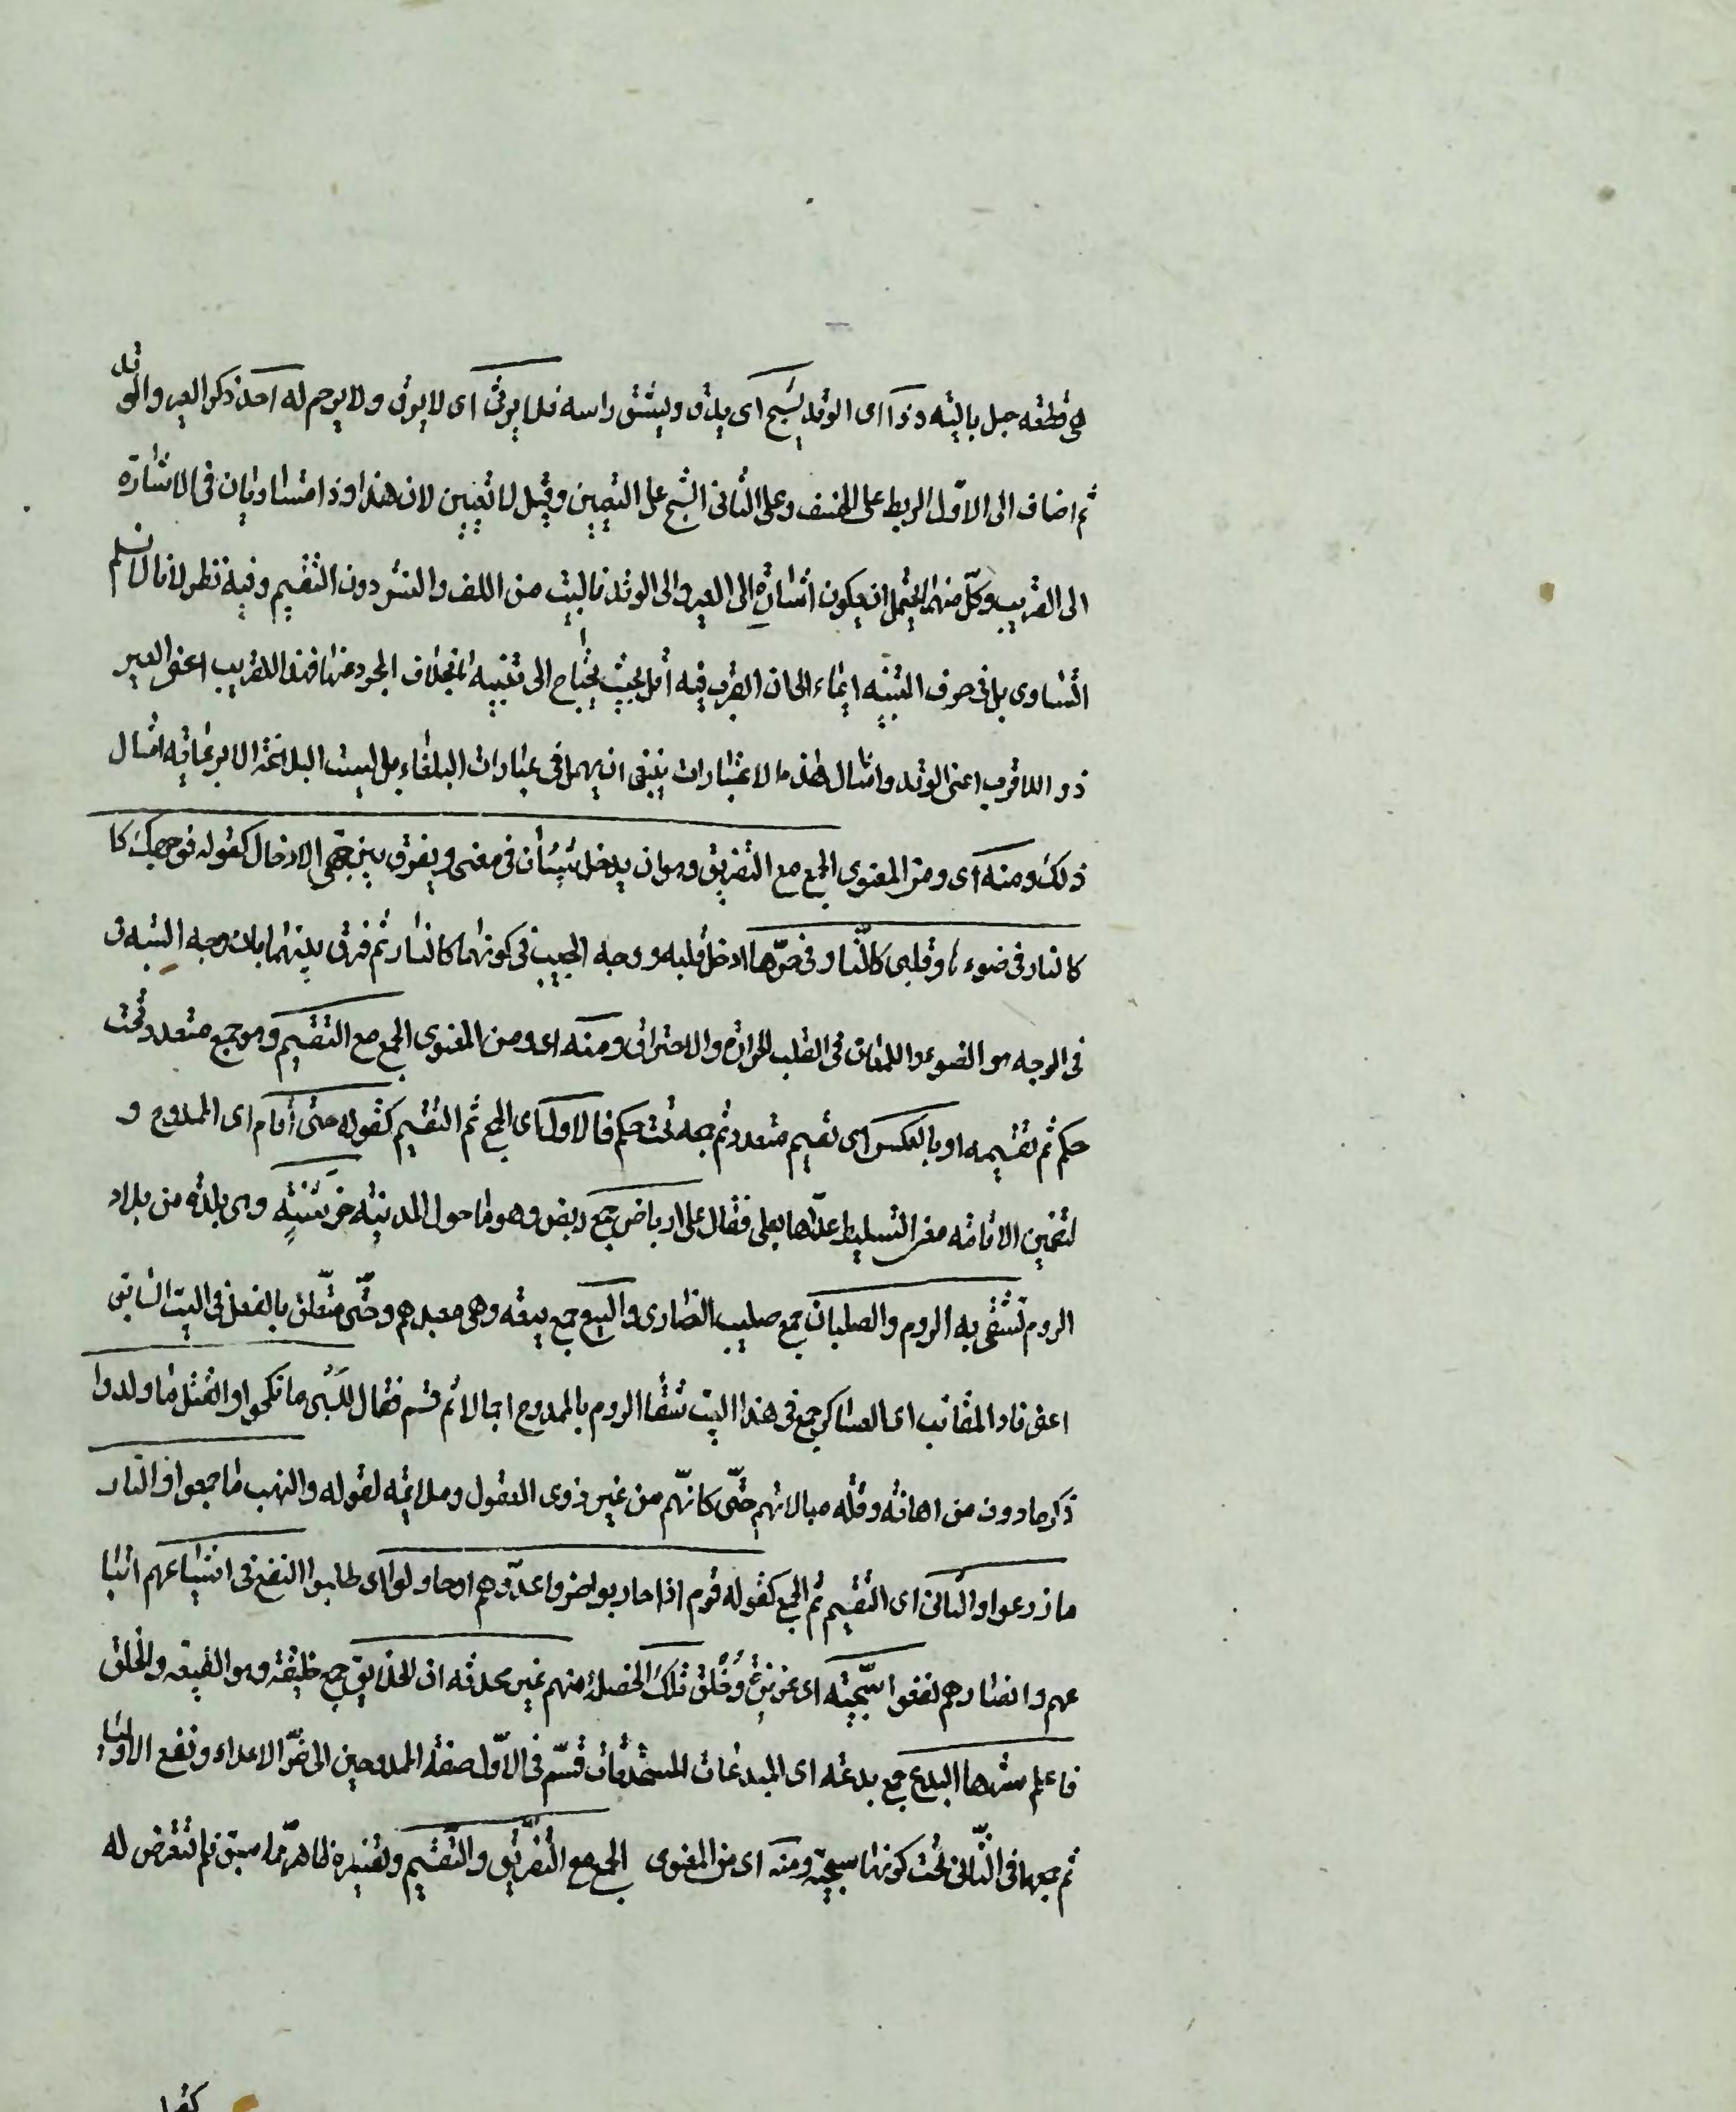 هي قطعه حبل باليه وذا اى الوتد يشج اى يدق ويشق راسه فلا يرثى اى لا يرق ولا يرحم له احد ذكر العير والوتد
ثم اضاف الى الاول الربط على الخسف وعلى الثانى الشج على التعيين وقيل لا تعيين لان هذا وذا متساويان فى الاشارة
الى القريب وكل منهما يحتمل ان يكون اشارة الى العير والى الوتد فالبيت من اللف والنشر دون التقسيم وفيه نظر لانا لا نسلم
التساوى بل فى حرف التنبيه ايماء الى ان القرب فيه اقل بحيث يحتاج الى تنبيه ما بخلاف المجرد عنها فهذا للقريب اعنى العير
وذا للاقرب اعنى الوتد وامثال هذه الاعتبارات ينبغى ان يهمل فى عبارات البلغاء بل ليست البلاغة الا برعاية امثال
ذلك ومنه اى ومن المعنوى الجمع مع التفريق وهو ان يدخل شيئان فى معنى ويفرق بين جهتى الادخال كقوله فوجهك كا
كالنار فى ضوءها وقلبى كالنار فى حرها ادخل قلبه ووجه الحبيب فى كونهما كالنار ثم فرق بينهما بان وجه الشبه فى
فى الوجه هو الضوء واللمعان فى القلب الحرارة والاحتراق ومنه اى ومن المعنوى الجمع مع التقسيم وهو جمع متعدد تحت
حكم ثم تقسيمه او بالعكس اى تقسيم متعدد ثم جمعه تحت حكم فالاول اى الجمع ثم التقسيم كقوله حتى أقام اى الممدوح و
لتضمين الاقامة معنى التسليط عداها بعلى فقال على ارباض جمع ربض وهو ما حول المدينة خرشنة وهى بلدة من بلاد
الروم تشقى به الروم والصلبان جمع صليب النصارى والبيع جمع بيعه وهى معبدهم وحتى متعلق بالفعل فى البيت السابق
اعنى قاد المقانب اى العساكر جمع فى هذا البيت شقا الروم بالممدوح اجمالا ثم قسم فقال للسبى ما نكحوا والقتل ما ولدوا
ذكر ما دون من اهانة وقلة مبالاتهم حتى كانهم من غير ذوى العقول وملائمة لقوله والنهب ما جمعوا والنار
ما زرعوا والثانى اى التقسيم ثم الجمع كقوله قوم اذا حاربوا ضروا عدوهم او حاولوا اى طلبوا النفع فى اشياعهم اتبا
عهم وانصارهم نفعوا سجية اى غريزة وخلق تلك الخصلة منهم غير محدثة ان الخلايق جمع خليقة وهو الطبيعة والخلق
فاعلم شرها البدع جمع بدعة اى المبدعات المستحدثات قسم فى الاول صفة الممدوحين الى ضر الاعداء ونفع الاولياء
ثم جمعها فى الثانى تحت كونها سجية ومنه اى من المعنوى الجمع مع التفريق والتقسيم وتفسيره ظاهر مما سبق فلم تتعرض له